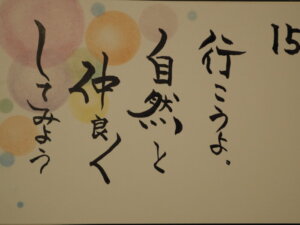 15
行こうよ.
自然と
仲良く
してみよう